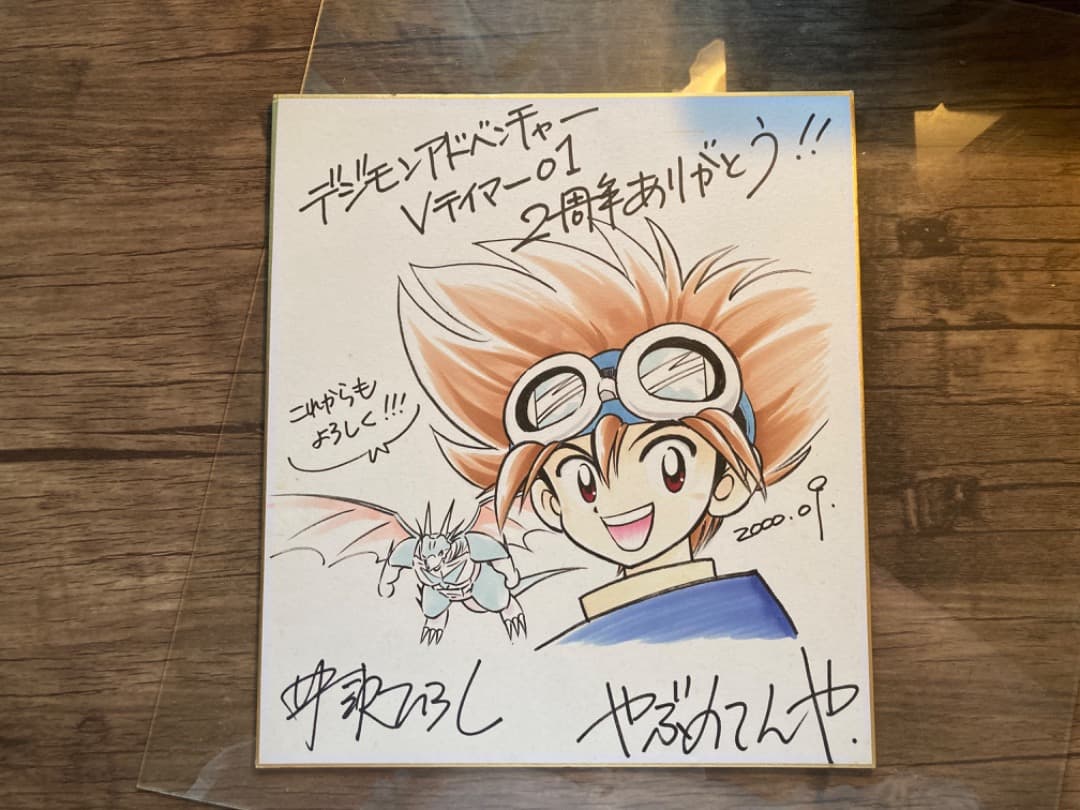 デジモンアドベンチャー
Vテイマー01
2周年ありがとう!!
これからも
よろしく!!!
2000.09.
井沢ひろし
やぶのてんや.